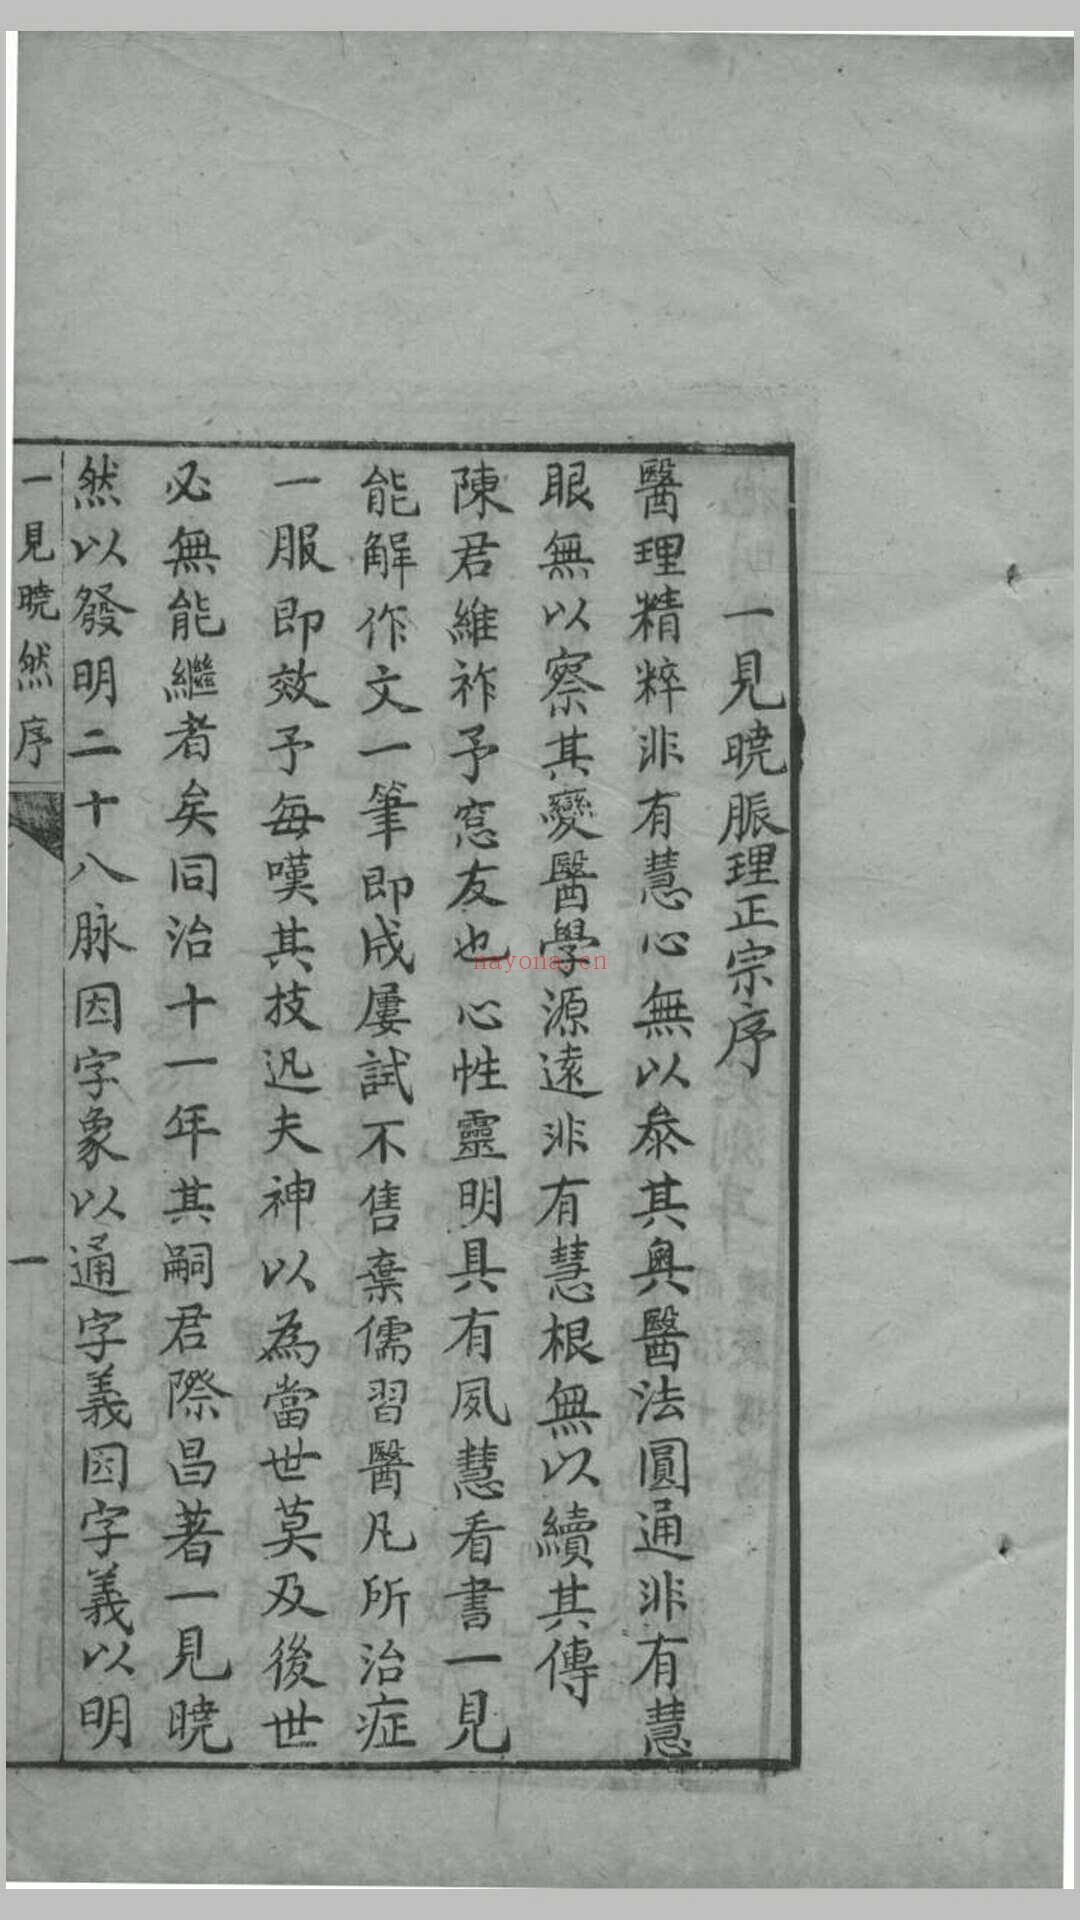 一見曉脈理正宗序
醫理精粹非有慧心無以叅其奧醫法圓通非有慧
眼無以察其變醫學源遠非有慧根無以續其傳
陳君維祚予窓友也心性靈明具有夙慧看書一見
能解作文一筆即成屢試不售棄儒習醫凡所治症
一服即效予每嘆其技迅夫神以為當世莫及後世
必無能繼者矣同治十一年其嗣君際昌著一見曉
然以發明二十八脉因字象以通字義因字義以明
一見曉然序
一
nayona.cn